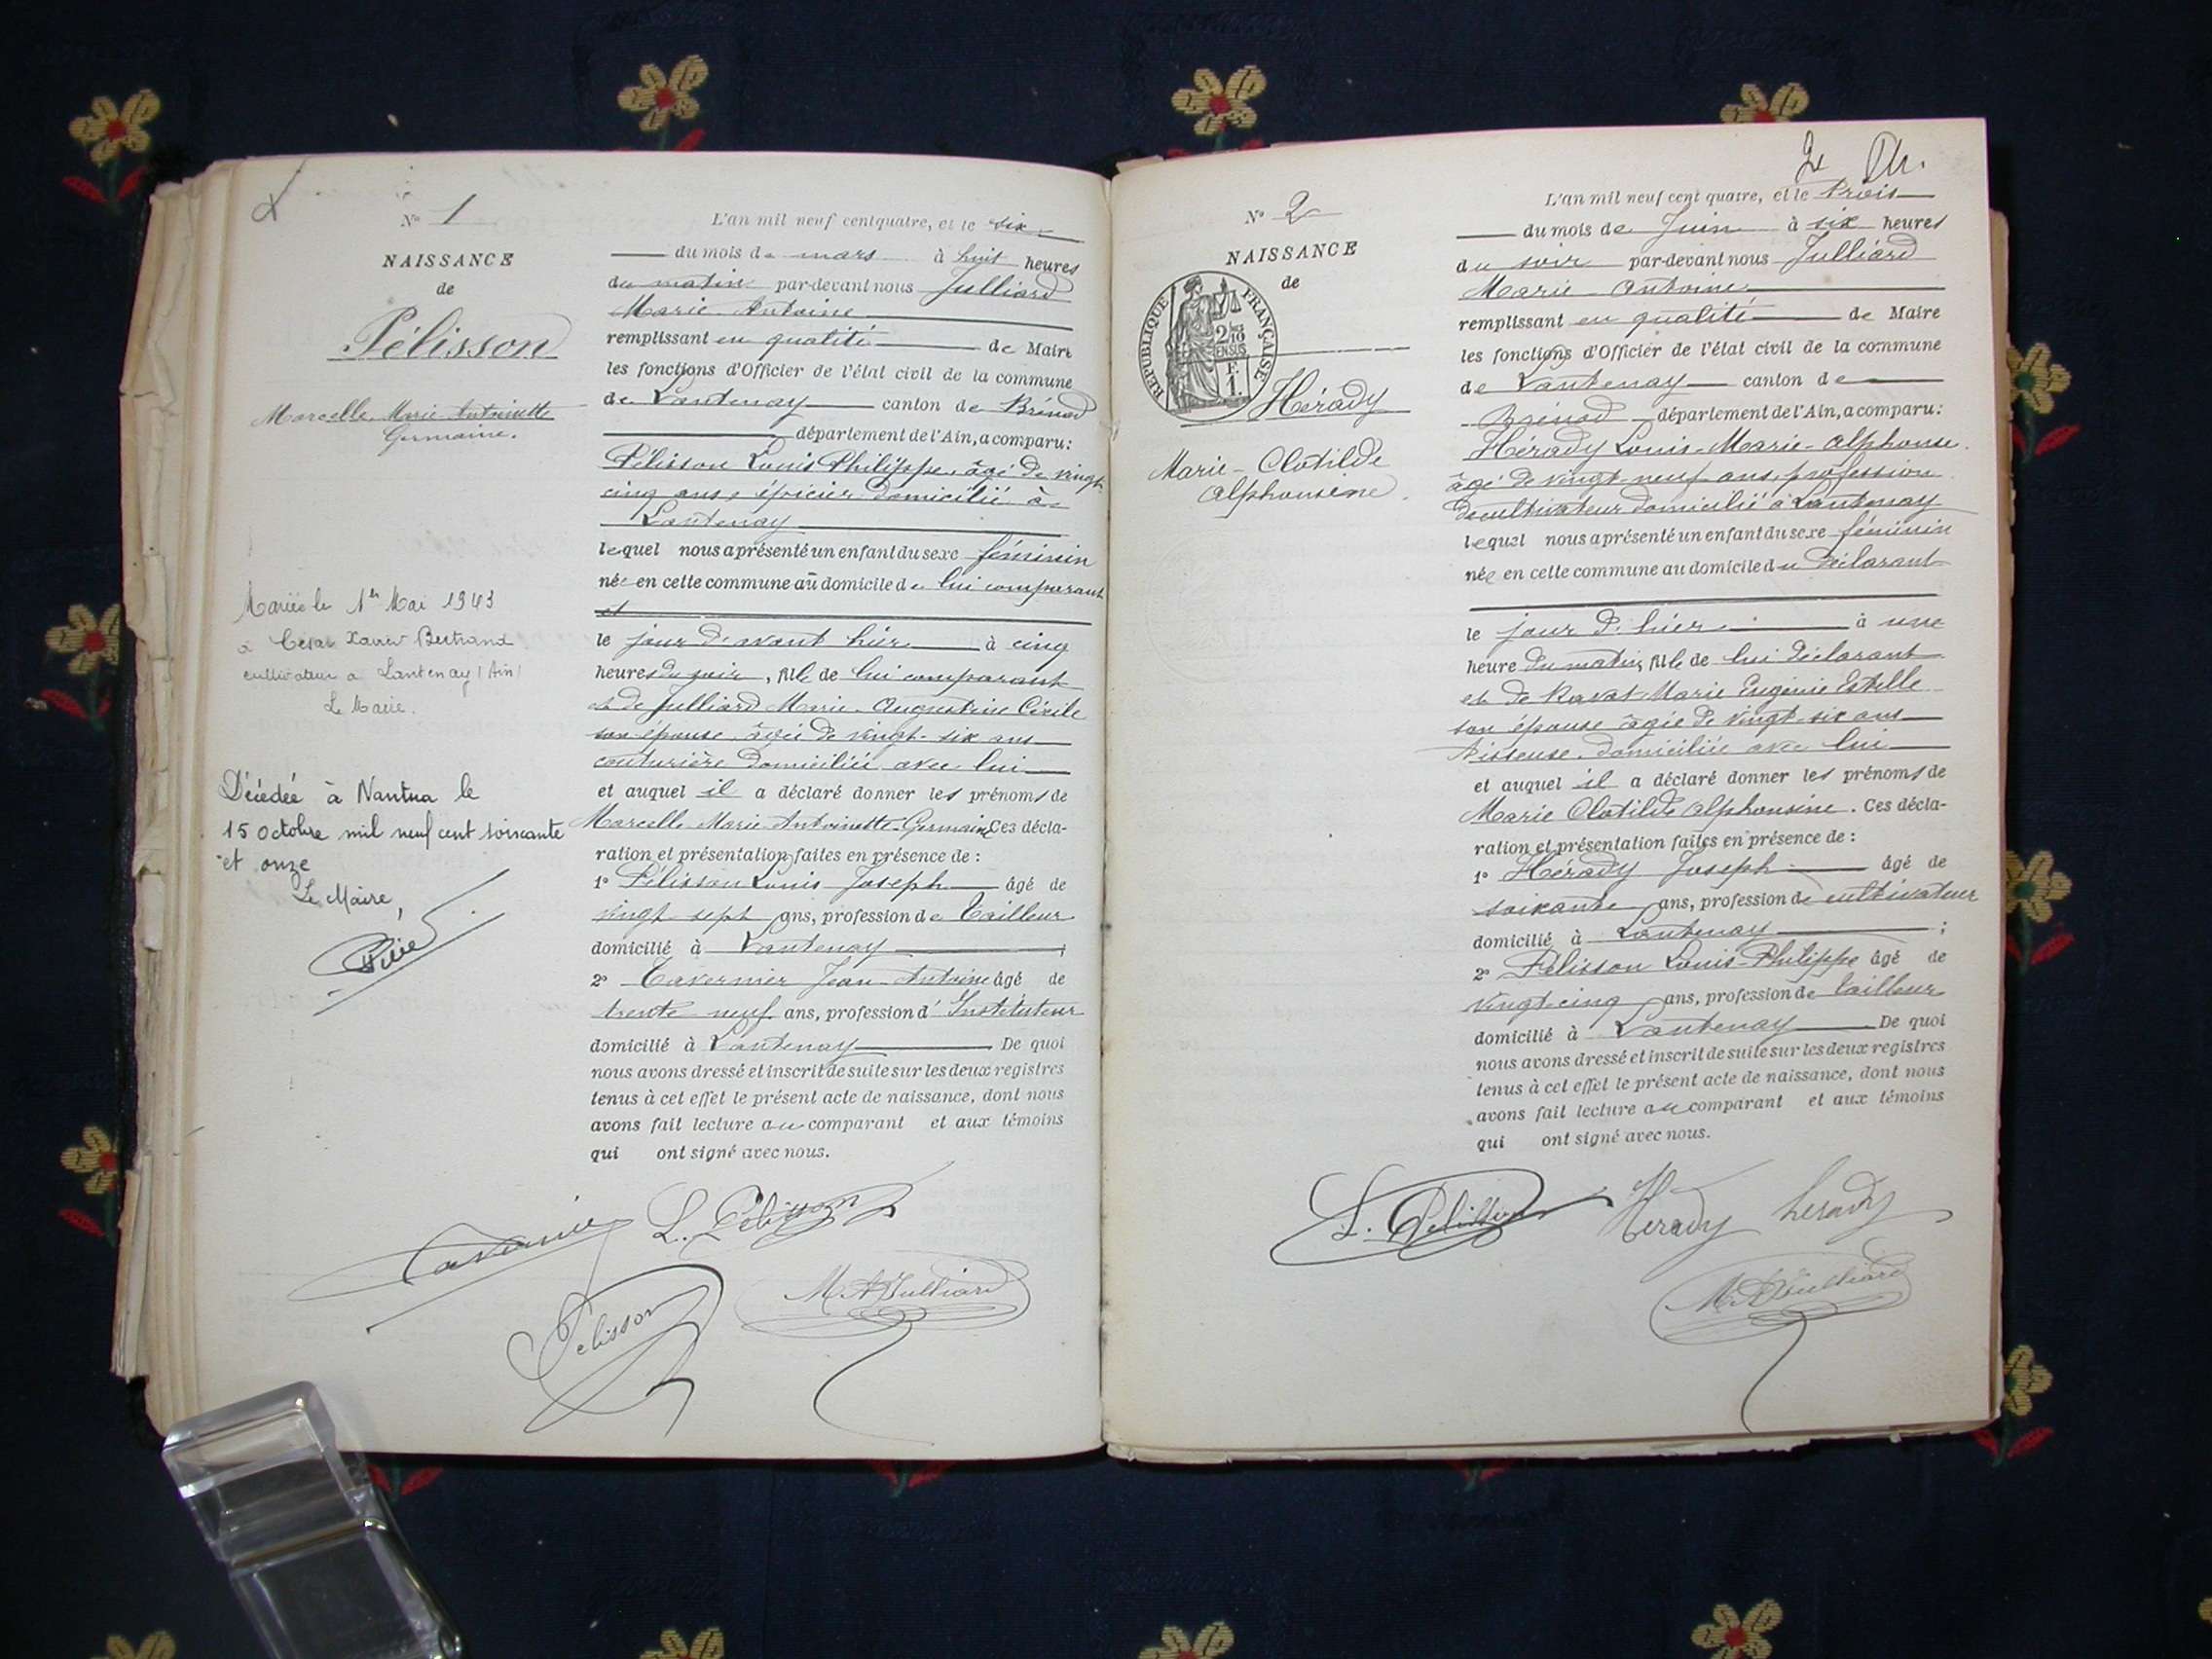 N° 1
NAISSANCE
de
Pélisson
Marcelle Marie Antoinette
Germaine.
Mariée le 1er Mai 1943
à César Xavier Bertrand
cultivateur à Lantenay (Ain)
Le Maire.
Décédée à Nantua le
15 octobre mil neuf cent soixante
et onze
Le Maire,
L'an mil neuf cent quatre, et le six
du mois de mars à huit heures
du matin par-devant nous Julliard
Marie Antoine
remplissant en qualité de Maire
les fonctions d'Officier de l'état civil de la commune
de Lantenay canton de Brénod
département de l'Ain, a comparu:
Pélisson Louis Philippe, âgé de vingt-
cinq ans, épicier domicilié à
Lantenay
lequel nous a présenté un enfant du sexe féminin
née en cette commune au domicile de lui comparant
et
le jour d'avant hier à cinq
heures du soir, fille de lui comparant
et de Julliard Marie Augustine Cécile
son épouse âgée de vingt-six ans
couturière domiciliée avec lui
et auquel il a déclaré donner les prénoms de
Marcelle Marie Antoinette Germaine Ces décla-
ration et présentation faites en présence de :
1° Pélisson Louis Joseph âgé de
vingt sept ans, profession de tailleur
domicilié à Lantenay ;
2° Tavernier Jean Antoine âgé de
trente neuf ans, profession d'Instituteur
domicilié à Lantenay De quoi
nous avons dressé et inscrit de suite sur les deux registres
tenus à cet effet le présent acte de naissance, dont nous
avons fait lecture au comparant et aux témoins
qui ont signé avec nous.
Tavernier L. Pélisson
Pelisson M A Julliard
N° 2
NAISSANCE
de
REPUBLIQUE FRANÇAISE
2/10
EN SUS
F.
1.
Hérady
Marie-Clotilde
Alphonsine.
2
L'an mil neuf cent quatre, et le trois
du mois de Juin à six heures
du soir par-devant nous Julliard
Marie Antoine
remplissant en qualité de Maire
les fonctions d'Officier de l'état civil de la commune
de Lantenay canton de
Brénod département de l'Ain, a comparu:
Hérady Louis-Marie-Alphonse
âgé de vingt-neuf ans, profession
de cultivateur domicilié à Lantenay
lequel nous a présenté un enfant du sexe féminin
née en cette commune au domicile du déclarant
le jour d'hier à une
heure du matin, fille de lui déclarant
et de Ravat Marie Eugénie Estelle
son épouse âgée de vingt-six ans
tisseuse domiciliée avec lui
et auquel il a déclaré donner les prénoms de
Marie Clotilde Alphonsine. Ces décla-
ration et présentation faites en présence de :
1° Hérady Joseph âgé de
soixante ans, profession de cultivateur
domicilié à Lantenay ;
2° Pélisson Louis-Philippe âgé de
vingt-cinq ans, profession de tailleur
domicilié à Lantenay De quoi
nous avons dressé et inscrit de suite sur les deux registres
tenus à cet effet le présent acte de naissance, dont nous
avons fait lecture au comparant et aux témoins
qui ont signé avec nous.
L. Pelisson Herady herady
M A Julliard